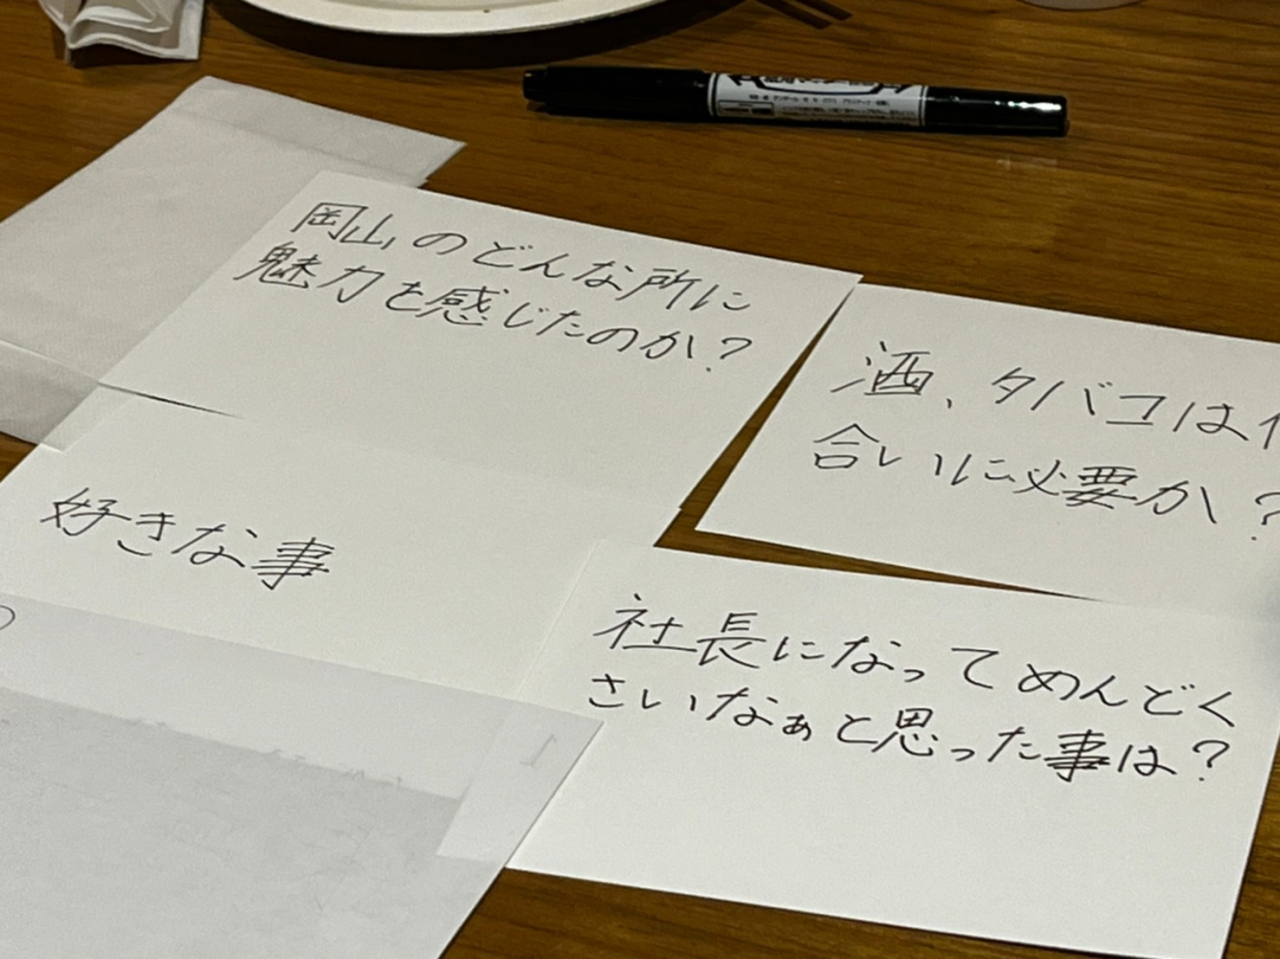 岡山のどんな所に
魅力を感じたのか?
酒、タバコは
合いに必要か?
好きな事
社長になってめんどく
さいなぁと思った事は?